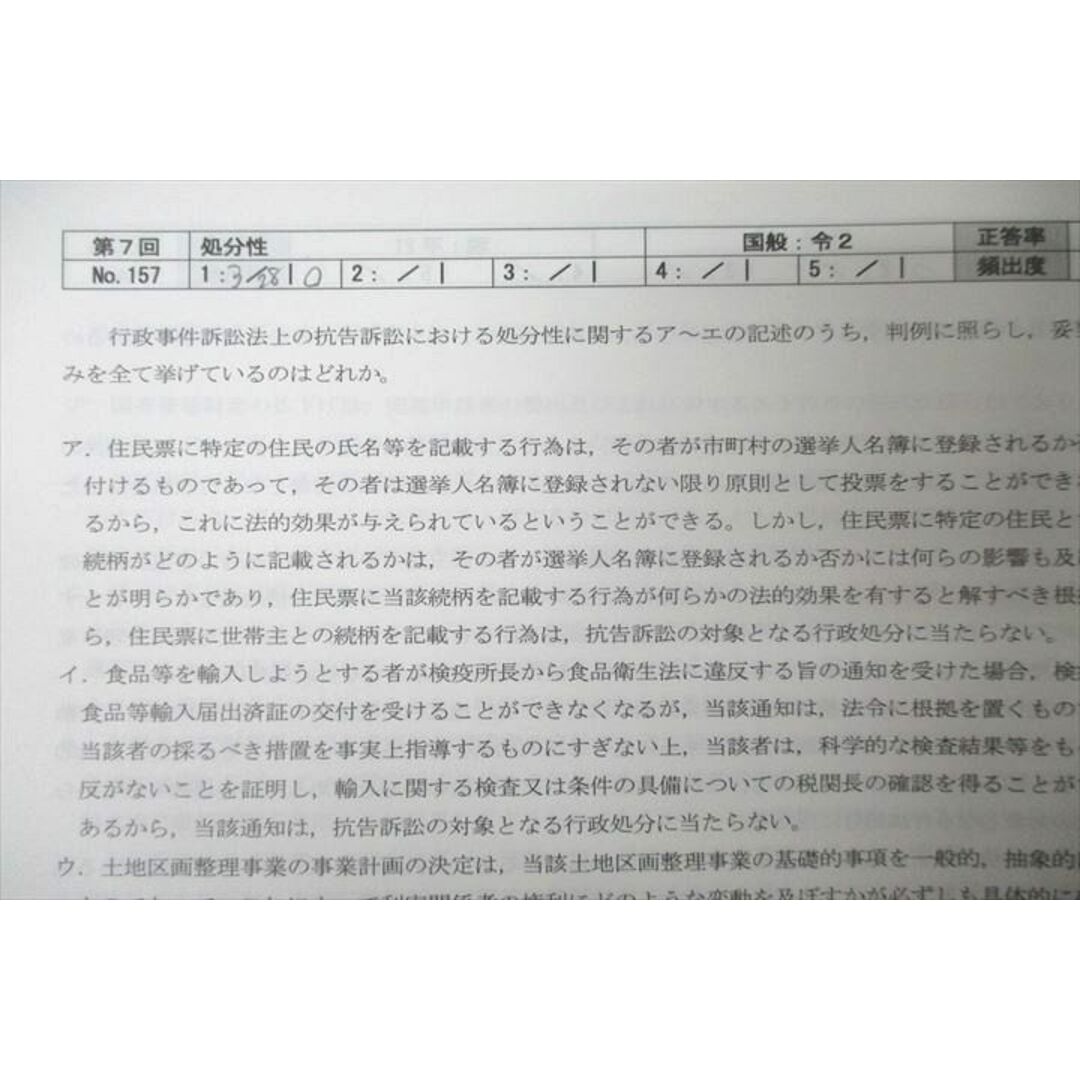 第7回 処分性 国般：令2 正答率
No. 157 1：3/28 | 0 2： ／ | 3： ／ | 4： ／ | 5： ／ | 頻出度
行政事件訴訟法上の抗告訴訟における処分性に関するア～エの記述のうち，判例に照らし，妥
みを全て挙げているのはどれか。
ア．住民票に特定の住民の氏名等を記載する行為は，その者が市町村の選挙人名簿に登録されるか
付けるものであって，その者は選挙人名簿に登録されない限り原則として投票をすることができ
るから，これに法的効果が与えられているということができる。しかし，住民票に特定の住民と
続柄がどのように記載されるかは，その者が選挙人名簿に登録されるか否かには何らの影響も及
とが明らかであり，住民票に当該続柄を記載する行為が何らかの法的効果を有すると解すべき根
ら，住民票に世帯主との続柄を記載する行為は，抗告訴訟の対象となる行政処分に当たらない。
イ．食品等を輸入しようとする者が検疫所長から食品衛生法に違反する旨の通知を受けた場合，検
食品等輸入届出済証の交付を受けることができなくなるが，当該通知は，法令に根拠を置くもので
当該者の採るべき措置を事実上指導するものにすぎない上，当該者は，科学的な検査結果等をも
反がないことを証明し，輸入に関する検査又は条件の具備についての税関長の確認を得ることが
あるから，当該通知は，抗告訴訟の対象となる行政処分に当たらない。
ウ．土地区画整理事業の事業計画の決定は，当該土地区画整理事業の基礎的事項を一般的，抽象的
によって利害関係者の権利にどのような変動を及ぼすかが必ずしも具体的に